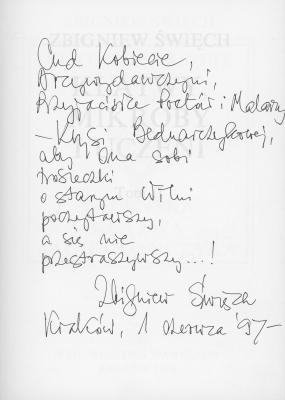 ZBIGNIEW ŚWIĘCH
Cud Kobiecie,
Arcywydawczyni,
Przyjaciółce Poetów i Malarzy
– Krysi Bednarczykowej,
aby Ona sobi
troszeczki
o starym Wilni
poczytawszy,
a się nie
przestraszywszy...!
Zbigniew Święch
Kraków, 1 czerwca '97–